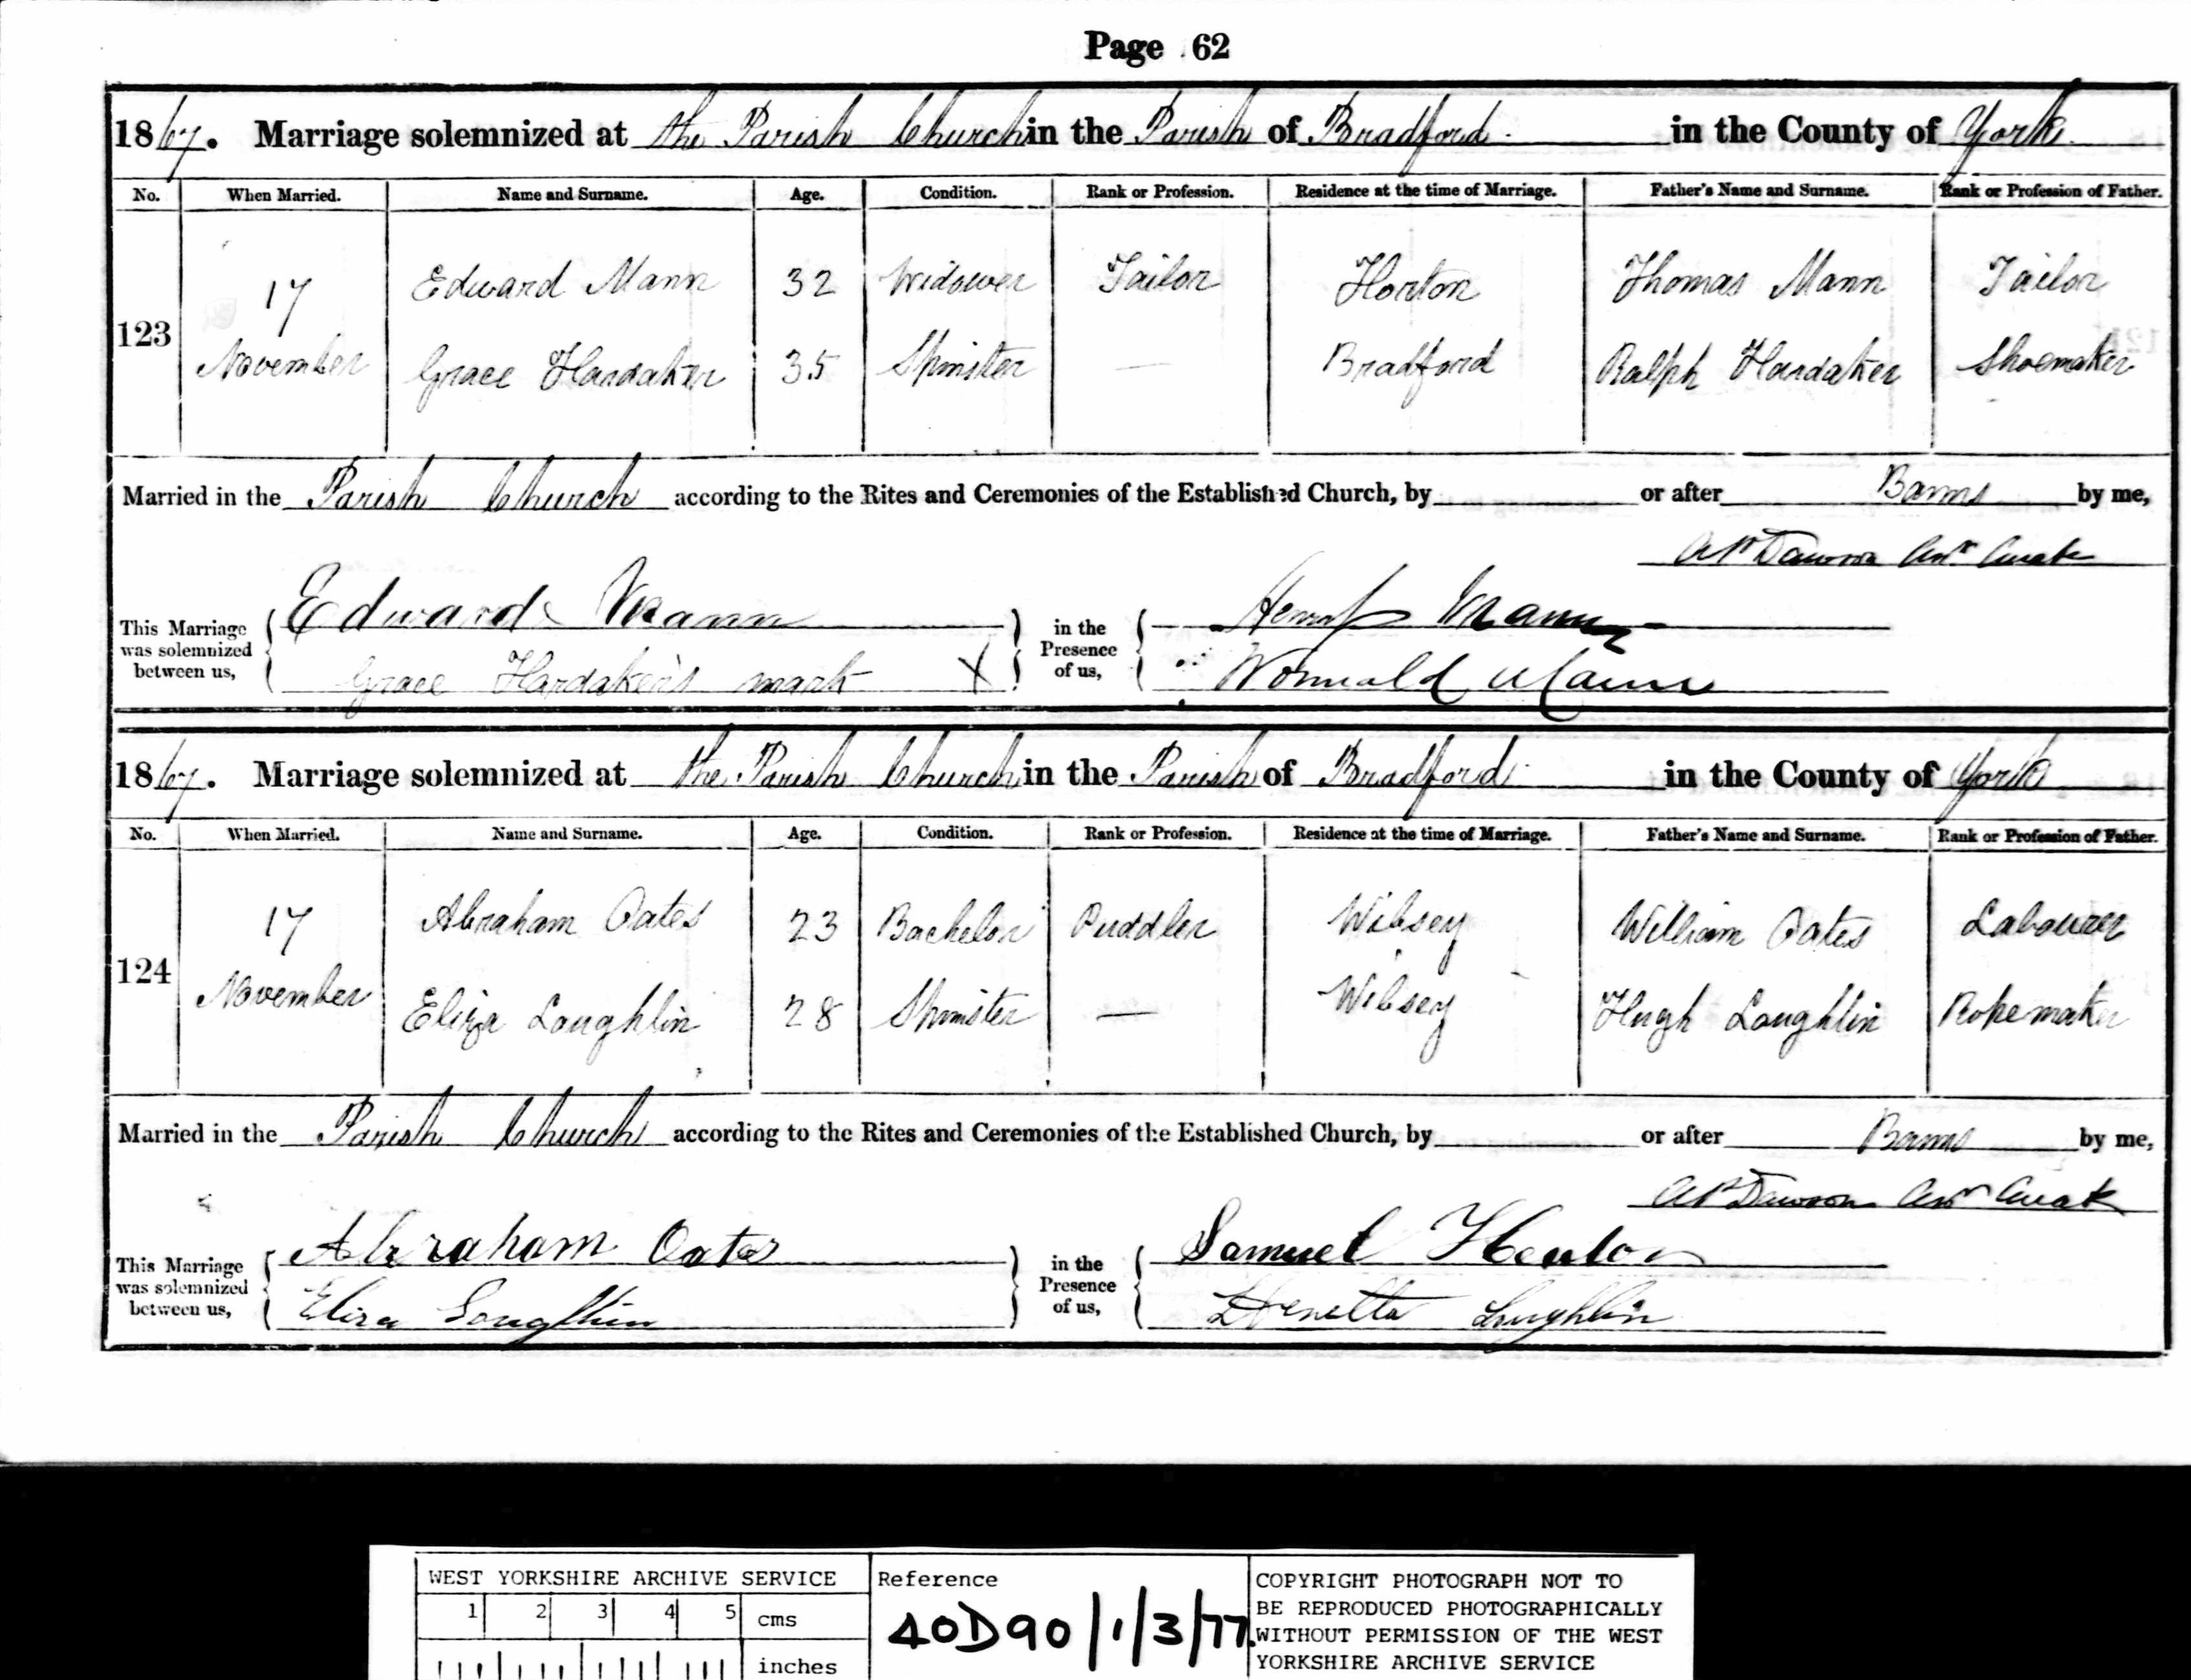 Page 62
1867. Marriage solemnized at the Parish Church in the Parish of Bradford in the County of York
No. When Married. Name and Surname. Age. Condition. Rank or Profession. Residence at the time of Marriage. Father's Name and Surname. Rank or Profession of Father.
17 Edward Mann 32 Widower Tailor Horton Thomas Mann Tailor
123
November Grace Hardaker 35 Spinster — Bradford Ralph Hardaker Shoemaker
Married in the Parish Church according to the Rites and Ceremonies of the Established Church, by or after Banns by me,
Dawson Curate
This Marriage was solemnized between us,
Edward Mann
Grace Hardaker's mark X
in the Presence of us,
Henry Mann
Wormald Mann
1867. Marriage solemnized at the Parish Church in the Parish of Bradford in the County of York
No. When Married. Name and Surname. Age. Condition. Rank or Profession. Residence at the time of Marriage. Father's Name and Surname. Rank or Profession of Father.
17 Abraham Oates 23 Bachelor Puddler Wibsey William Oates Labourer
124
November Eliza Loughlin 28 Spinster — Wibsey Hugh Loughlin Ropemaker
Married in the Parish Church according to the Rites and Ceremonies of the Established Church, by or after Banns by me,
Dawson Curate
This Marriage was solemnized between us,
Abraham Oates
Eliza Loughlin
in the Presence of us,
Samuel
Loughlin
WEST YORKSHIRE ARCHIVE SERVICE
1 2 3 4 5 cms
inches
Reference
40D90/1/3/77.
COPYRIGHT PHOTOGRAPH NOT TO
BE REPRODUCED PHOTOGRAPHICALLY
WITHOUT PERMISSION OF THE WEST
YORKSHIRE ARCHIVE SERVICE